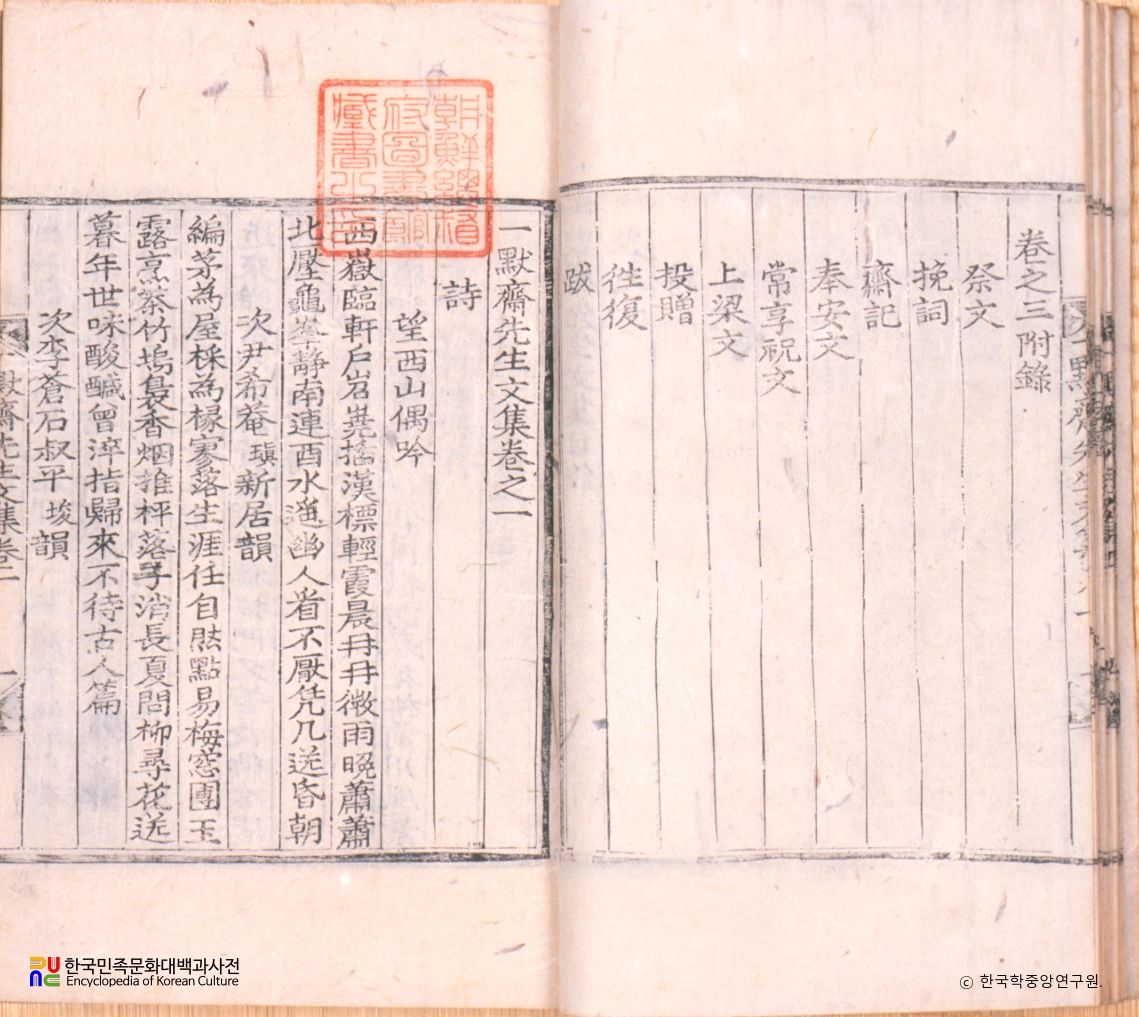 卷之三 附錄
祭文
挽詞
齋記
奉安文
常享祝文
上梁文
投贈
徃復
跋
一默齋先生文集卷之一
詩
望西山偶吟
西嶽臨軒戶岧嶤揷漢標輕霞晨冉冉微雨晩蕭蕭
北壓龜峯静南連酉水遥幽人看不厭凭几送昏朝
次尹希菴 瑱 新居韻
編茅為屋採為椽寥落生涯任自然點易梅窓團玉
露烹茶竹塢裊香烟推枰落子消長夏問柳尋花送
暮年世味酸醎曾淬指歸來不待古人篇
次李蒼石叔平 埈 韻
默齋先生文集卷一
一
朝鮮總督
府圖書館
藏書之印
한국민족문화대백과사전
Encyclopedia of Korean Culture
© 한국학중앙연구원.